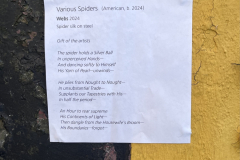 Various Spiders (American, b. 2024)
Webs 2024
Spider silk on steel
Gift of the artists
The spider holds a Silver Ball
In unperceived Hands—
And dancing softly to Himself
His Yarn of Pearl—unwinds—
He plies from Nought to Nought—
In unsubstantial Trade—
Supplants our Tapestries with His—
In half the period—
An Hour to rear supreme
His Continents of Light—
Then dangle from the Housewife's Broom—
His Boundaries—forgot—